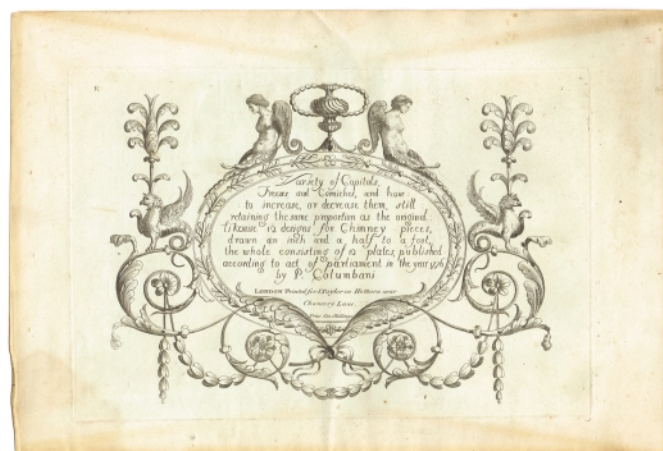 Variety of Capitals,
Freezes and Corniches, and how
to increase, or decrease them, still
retaining the same proportion as the original.
likewise 12 designs for Chimney pieces,
drawn an inch and a half to a foot,
the whole consisting of 12 plates published
according to act of parliament in the year 1776
by P. Columbani
LONDON Printed for I. Taylor in Holborn near
Chancery Lane.
Price Six Shillings